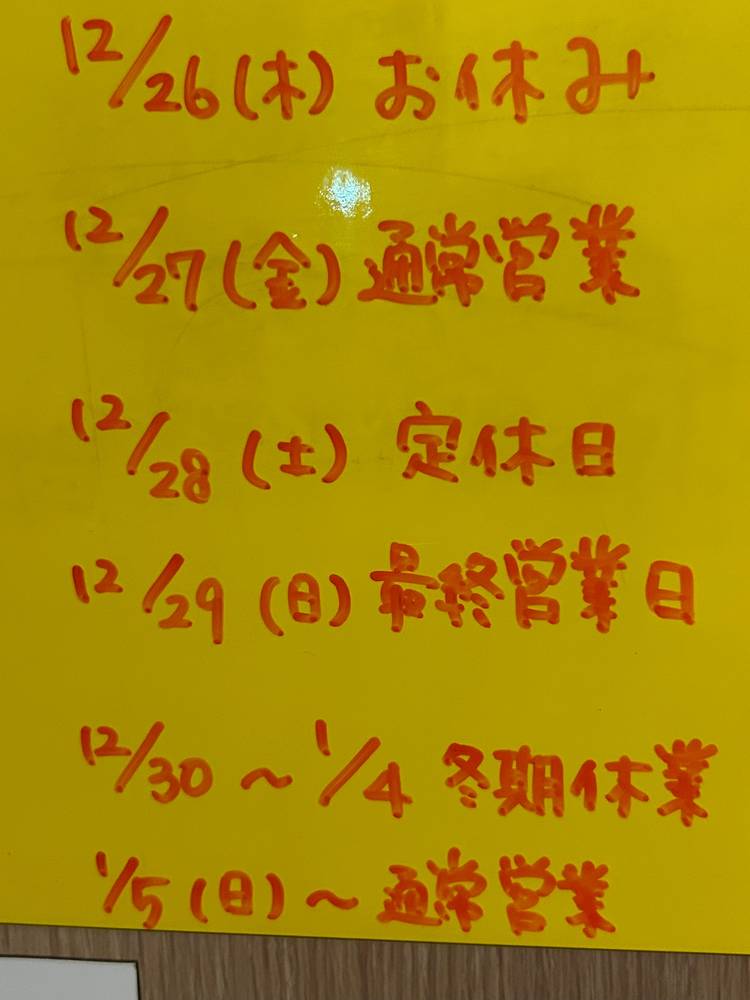 12/26(木) お休み
12/27(金)通常営業
12/28(土) 定休日
12/29(日)最終営業日
12/30~1/4 冬期休業
1/5(日)~通常営業